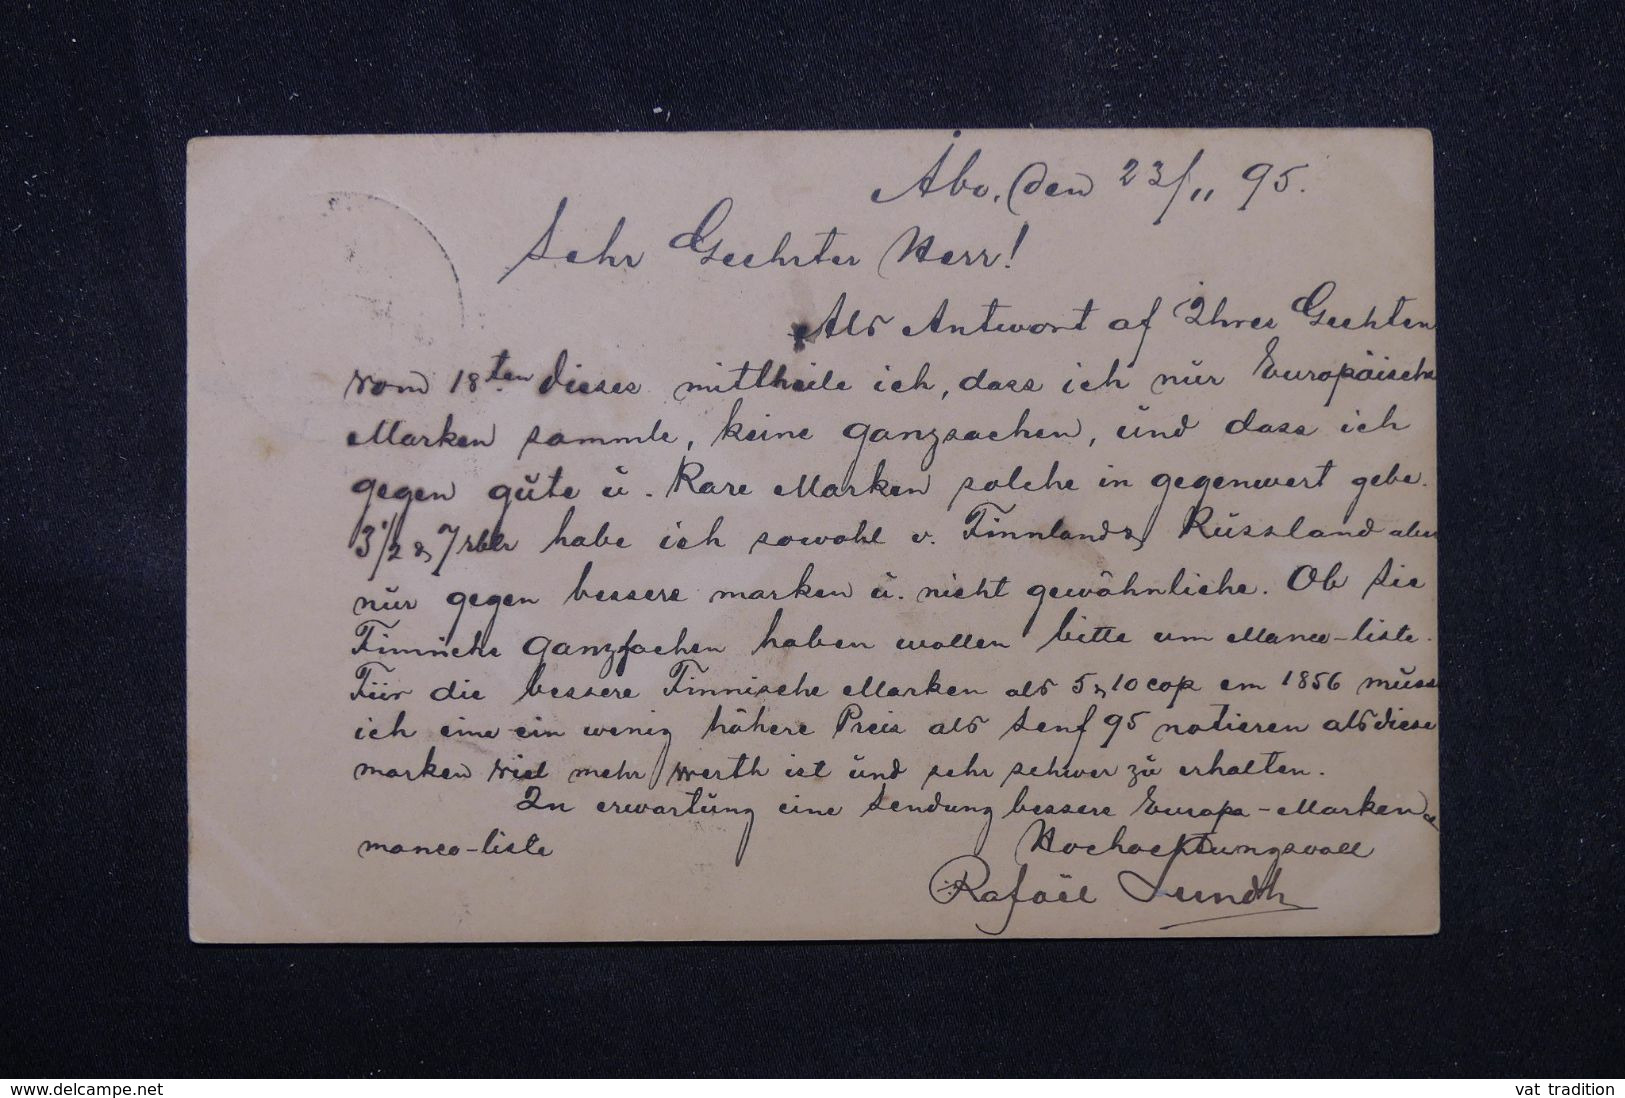 Åbo, den 23/11 95.
Sehr Geehrter Herr!
Als Antwort af Ihres Geehten
vom 18ten dieses mittheile ich, dass ich nur Europäische
Marken sammle, keine ganzsachen, und dass ich
gegen gute u. Rare Marken solche in gegenwert gebe.
3½ & 7 rblr habe ich sowohl v. Finnland & Russland aber
nur gegen bessere marken u. nicht gewöhnliche. Ob Sie
Finniche ganzsachen haben wollen bitte um Manco-liste.
Für die bessere Finnische Marken als 5 & 10 cop em 1856 muss
ich eine ein wenig höhere Preis als Senf 95 notieren als diese
marken viel mehr werth ist und sehr schwer zu erhalten.
In erwartung eine Sendung bessere Europa-Marken &
manco-liste Hochachtungsvoll
Rafael Lundh
www.delcampe.net vat tradition